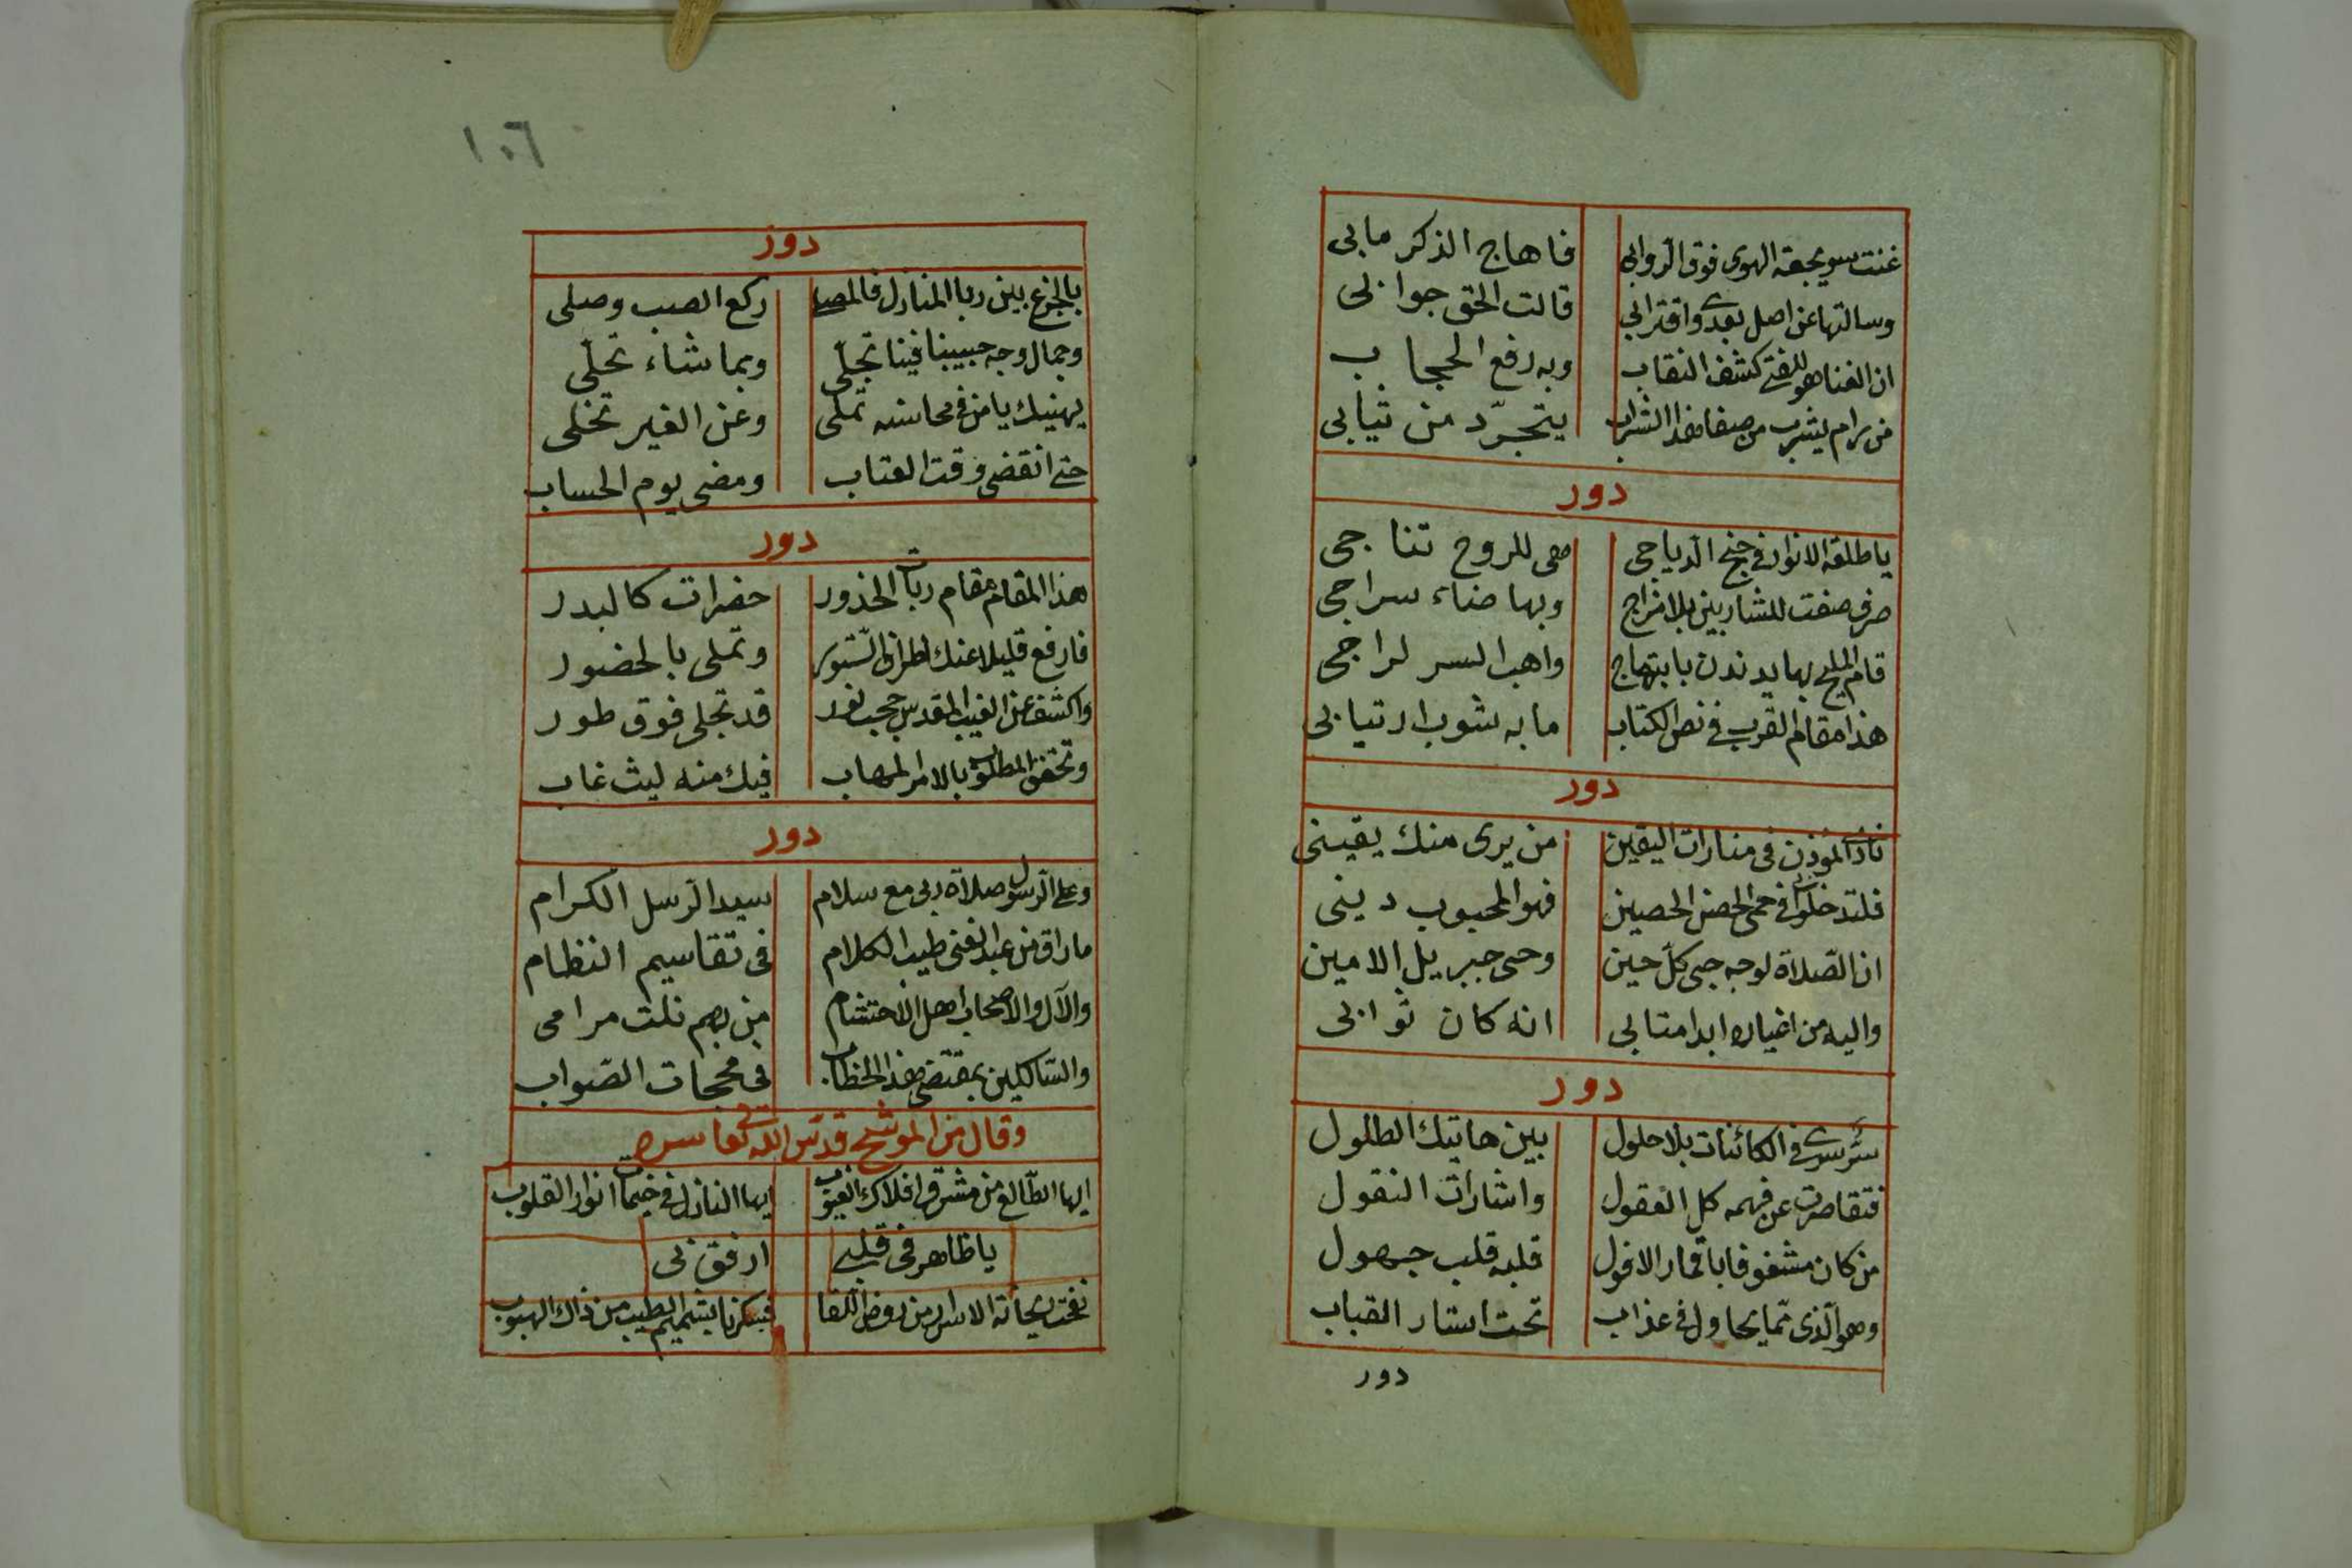 غنت سويجعة الهوى فوق الروابي فاهاج الذكر مابي
وسالتها عن اصل بعدي واقترابي قالت الحق جوابي
ان الفنا هو للفتى كشف النقاب وبه رفع الحجاب
من رام يشرب من صفا هذا الشراب يتجرّد من ثيابي
دور
يا طلعة الانوار في جنح الدياجي هي للروح تناجي
صرف صفت للشاربين بلا مزاج وبها ضاء سراجي
قام المليح بها يدندن بابتهاج واهب السر لراجي
هذا مقام القرب في نص الكتاب ما به شوب ارتيابي
دور
نادى المؤذن في منارات اليقين من يرى منك يقيني
فلتدخلوا في حمى الحصن الحصين فهو المحبوب ديني
ان الصّلاة لوجه حبي كل حين وحي جبريل الامين
واليه من اغياره ابدا متابي انه كان ثوابي
دور
سرّ سرى في الكائنات بلا حلول بين هاتيك الطلول
فتقاصرت عن فهمه كل العقول واشارات النقول
من كان مشغوفا باقمار الافول قلبه قلب جهول
وهو الّذي ممّا يحاول في عذاب تحت استار القباب
دور
١٠٦
دور
بالجزع بين ربا المنازل فالمصلى ركع الصب وصلى
وجمال وجه حبيبنا فينا تجلّى وبما شاء تحلّى
يهنيك يا من في محاسنه تملى وعن الغير تخلى
حتى انقضى وقت العتاب ومضى يوم الحساب
دور
هذا المقام مقام ربات الخدور حضرات كالبدر
فارفع قليلا عنك اطراف الستور وتملى بالحضور
واكشف عن الغيب المقدس حجب نور قد تجلى فوق طور
وتحقق المطلوب بالامر المهاب فيك منه ليث غاب
دور
وعلى الرسول صلاة ربي مع سلام سيد الرسل الكرام
ما راق من عبد الغني طيب الكلام في تقاسيم النظام
والآل والاصحاب اهل الاحتشام من بهم نلت مرامي
والسالكين بمقتضى هذا الخطاب في محجات الصّواب
وقال من الموشح قدّس الله تعالى سره
ايها الطّالع من مشرق افلاك الغيوب ايها النازل في خيمات انوار القلوب
يا ظاهر في قلبي ارفق بي
نفحت ريحانة الاسرار من روض اللقا فسكرنا بشميم الطيب من ذاك الهبوب